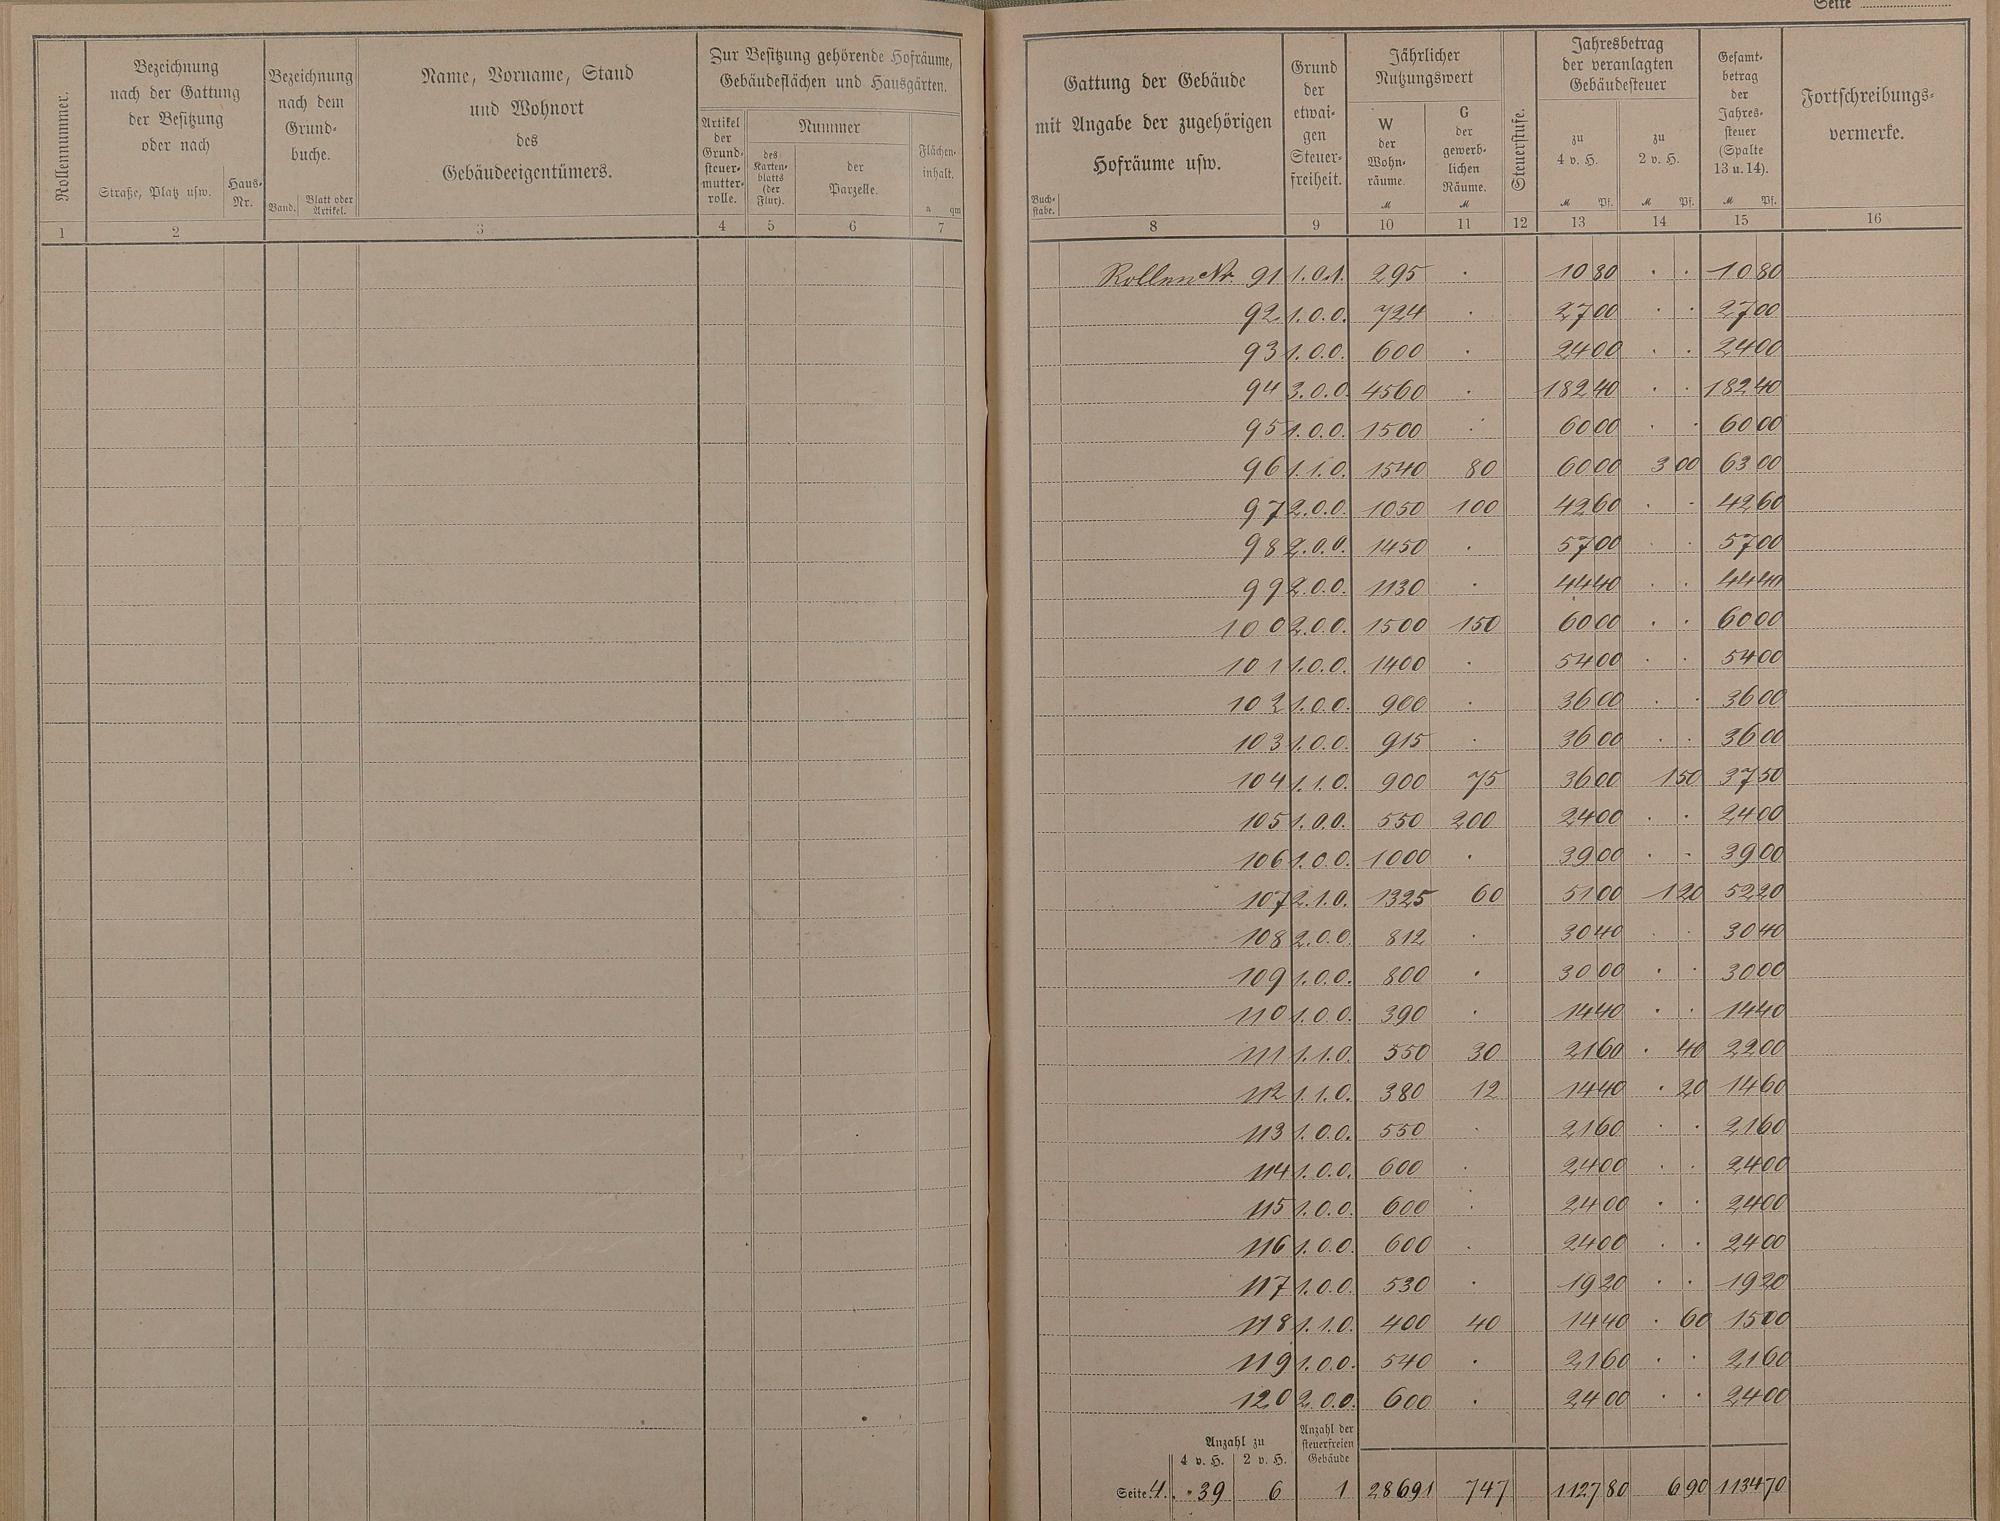 Seite
Rollennummer.
Bezeichnung
nach der Gattung
der Besitzung
oder nach
Straße, Platz usw.
Haus-
Nr.
Bezeichnung
nach dem
Grund-
buche.
Band.
Blatt oder
Artikel.
Name, Vorname, Stand
und Wohnort
des
Gebäudeeigentümers.
Zur Besitzung gehörende Hofräume,
Gebäudeflächen und Hausgärten.
Artikel
der
Grund-
steuer-
mutter-
rolle.
Nummer
des
Karten-
blatts
(der
Flur).
der
Parzelle.
Flächen-
inhalt.
a qm
1 2 3 4 5 6 7
Gattung der Gebäude
mit Angabe der zugehörigen
Hofräume usw.
Buch-
stabe.
Grund
der
etwai-
gen
Steuer-
freiheit.
Jährlicher
Nutzungswert
W
der
Wohn-
räume.
M
G
der
gewerb-
lichen
Räume.
M
Steuerstufe.
Jahresbetrag
der veranlagten
Gebäudesteuer
zu
4 v. H.
M Pf.
zu
2 v. H.
M Pf.
Gesamt-
betrag
der
Jahres-
steuer
(Spalte
13 u. 14).
M Pf.
Fortschreibungs-
vermerke.
8 9 10 11 12 13 14 15 16
Rollen Nr. 91 1.0.1. 295 . 10 80 . . 10 80
92 1.0.0. 724 . 27 00 . . 27 00
93 1.0.0. 600 . 24 00 . . 24 00
94 3.0.0. 4560 . 182 40 . . 182 40
95 1.0.0. 1500 . 60 00 . . 60 00
96 1.1.0. 1540 80 60 00 3 00 63 00
97 2.0.0. 1050 100 42 60 . . 42 60
98 2.0.0. 1450 . 57 00 . . 57 00
99 2.0.0. 1130 . 44 40 . . 44 40
100 2.0.0. 1500 150 60 00 . . 60 00
101 1.0.0. 1400 . 54 00 . . 54 00
102 1.0.0. 900 . 36 00 . . 36 00
103 1.0.0. 915 . 36 00 . . 36 00
104 1.1.0. 900 75 36 00 1 50 37 50
105 1.0.0. 550 200 24 00 . . 24 00
106 1.0.0. 1000 . 39 00 . . 39 00
107 2.1.0. 1325 60 51 00 1 20 52 20
108 2.0.0. 812 . 30 40 . . 30 40
109 1.0.0. 800 . 30 00 . . 30 00
110 1.0.0. 390 . 14 40 . . 14 40
111 1.1.0. 550 30 21 60 . 40 22 00
112 1.1.0. 380 12 14 40 . 20 14 60
113 1.0.0. 550 . 21 60 . . 21 60
114 1.0.0. 600 . 24 00 . . 24 00
115 1.0.0. 600 . 24 00 . . 24 00
116 1.0.0. 600 . 24 00 . . 24 00
117 1.0.0. 530 . 19 20 . . 19 20
118 1.1.0. 400 40 14 40 . 60 15 00
119 1.0.0. 540 . 21 60 . . 21 60
120 2.0.0. 600 . 24 00 . . 24 00
Anzahl zu
4 v. H. 2 v. H.
Anzahl der
steuerfreien
Gebäude
Seite 4. . 39 6 1 28691 747 1127 80 6 90 1134 70